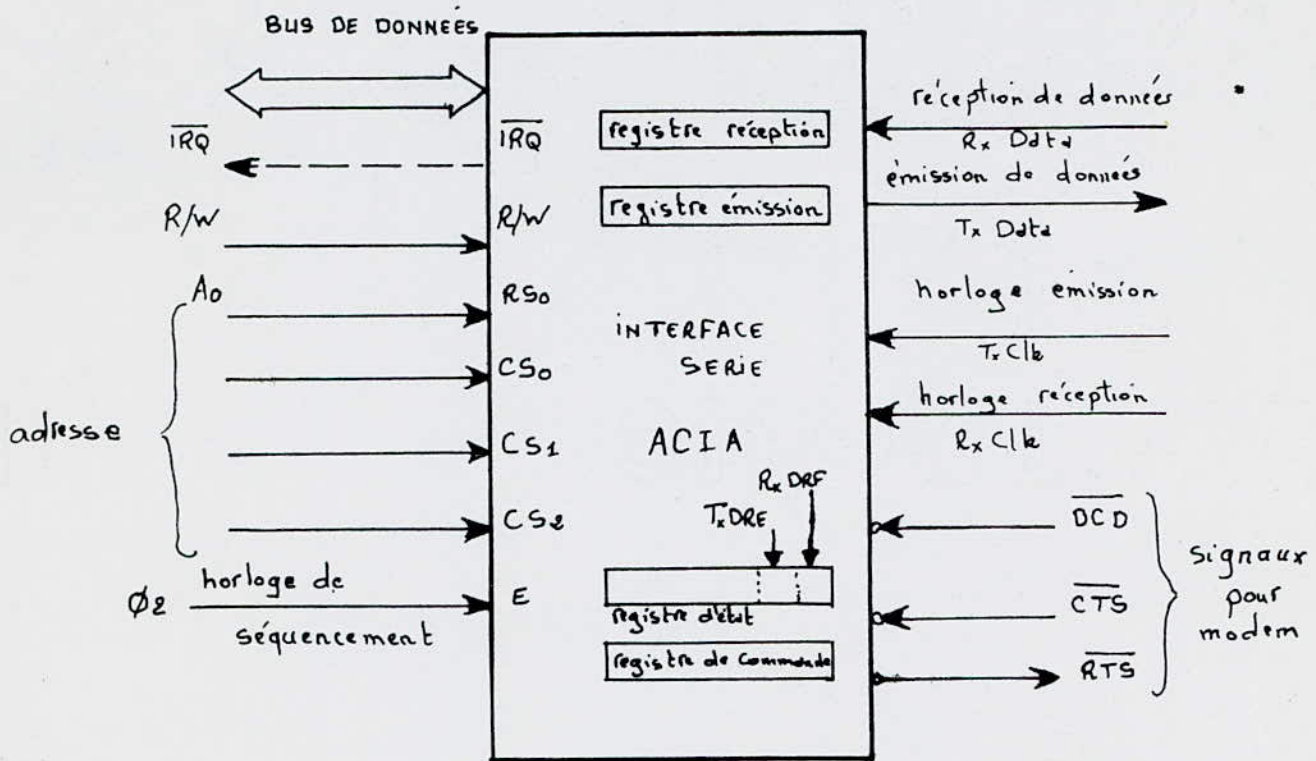 BUS DE DONNÉES
IRQ
R/W
A0
adresse
Ø2
horloge de
séquencement
IRQ
R/W
RS0
CS0
CS1
CS2
E
registre réception
registre émission
INTERFACE
SERIE
ACIA
RxDRF
TxDRE
registre d'état
registre de commande
réception de données
Rx Data
émission de données
Tx Data
horloge émission
Tx Clk
horloge réception
Rx Clk
DCD
CTS
RTS
signaux
pour
modem